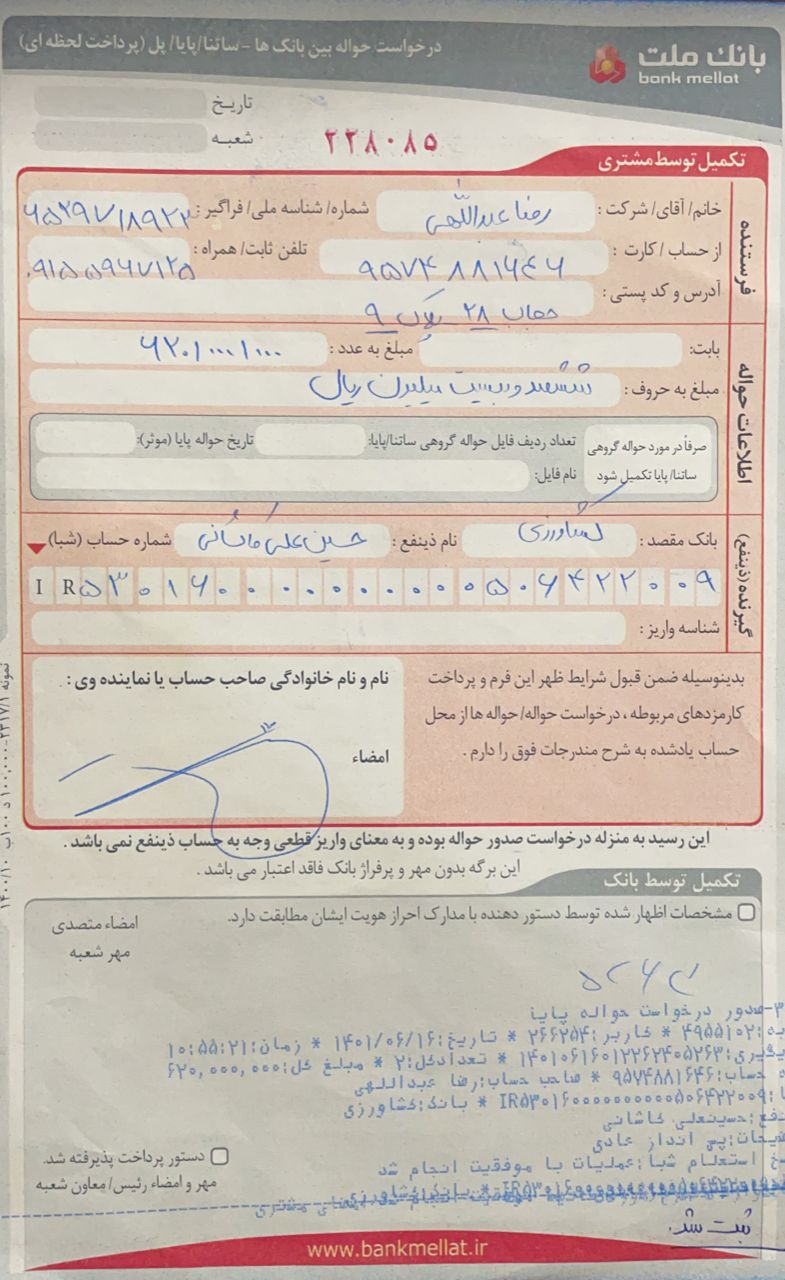 بانک ملت
bank mellat
درخواست حواله بین بانک ها - ساتنا/پایا/ پل (پرداخت لحظه ای)
تاریخ
شعبه
۲۲۸۰۸۵
تکمیل توسط مشتری
فرستنده
خانم/ آقای/ شرکت : رضا عبداللهی شماره/ شناسه ملی/ فراگیر :
از حساب / کارت : ۹۵۷۴۸۸۱۶۴۶ تلفن ثابت/ همراه : ۰۹۱۵۵۹۶۷۱۲۵
آدرس و کد پستی : حجاب ۲۸ پلاک ۹
اطلاعات حواله
بابت: مبلغ به عدد : ۶۲۰/۰۰۰/۰۰۰
مبلغ به حروف : ششصد و بیست میلیون ریال
صرفاً در مورد حواله گروهی ساتنا/ پایا تکمیل شود
تعداد ردیف فایل حواله گروهی ساتنا/پایا: تاریخ حواله پایا (موثر):
نام فایل:
گیرنده (ذینفع)
بانک مقصد : کشاورزی نام ذینفع : حسین علی کاشانی شماره حساب (شبا)
IR۵۳۰۱۶۰۰۰۰۰۰۰۰۰۰۰۵۰۶۴۲۲۰۰۹
شناسه واریز :
بدینوسیله ضمن قبول شرایط ظهر این فرم و پرداخت
کارمزدهای مربوطه ، درخواست حواله/ حواله ها از محل
حساب یادشده به شرح مندرجات فوق را دارم .
نام و نام خانوادگی صاحب حساب یا نماینده وی :
امضاء
این رسید به منزله درخواست صدور حواله بوده و به معنای واریز قطعی وجه به حساب ذینفع نمی باشد .
این برگه بدون مهر و پرفراژ بانک فاقد اعتبار می باشد .
تکمیل توسط بانک
مشخصات اظهار شده توسط دستور دهنده با مدارک احراز هویت ایشان مطابقت دارد.
امضاء متصدی
مهر شعبه
۳-صدور درخواست حواله پایا
۴۹۵۵۱۰۲ * کاربر :۲۶۶۲۵۴ * تاریخ:۱۴۰۱/۰۶/۱۶ * زمان:۱۰:۵۵:۲۱
۱۴۰۱۰۶۱۶۰۱۲۲۶۲۴۰۵۲۶۳ * تعدادکل:۲ * مبلغ کل:۶۲۰,۰۰۰,۰۰۰
حساب:۹۵۷۴۸۸۱۶۴۶ * صاحب حساب:رضا عبداللهی
IR۵۳۰۱۶۰۰۰۰۰۰۰۰۰۰۰۵۰۶۴۲۲۰۰۹ * بانک:کشاورزی
حسینعلی کاشانی
پس انداز عادی
استعلام شبا:عملیات با موفقیت انجام شد
دستور پرداخت پذیرفته شد.
مهر و امضاء رئیس/ معاون شعبه
ثبت شد.
www.bankmellat.ir